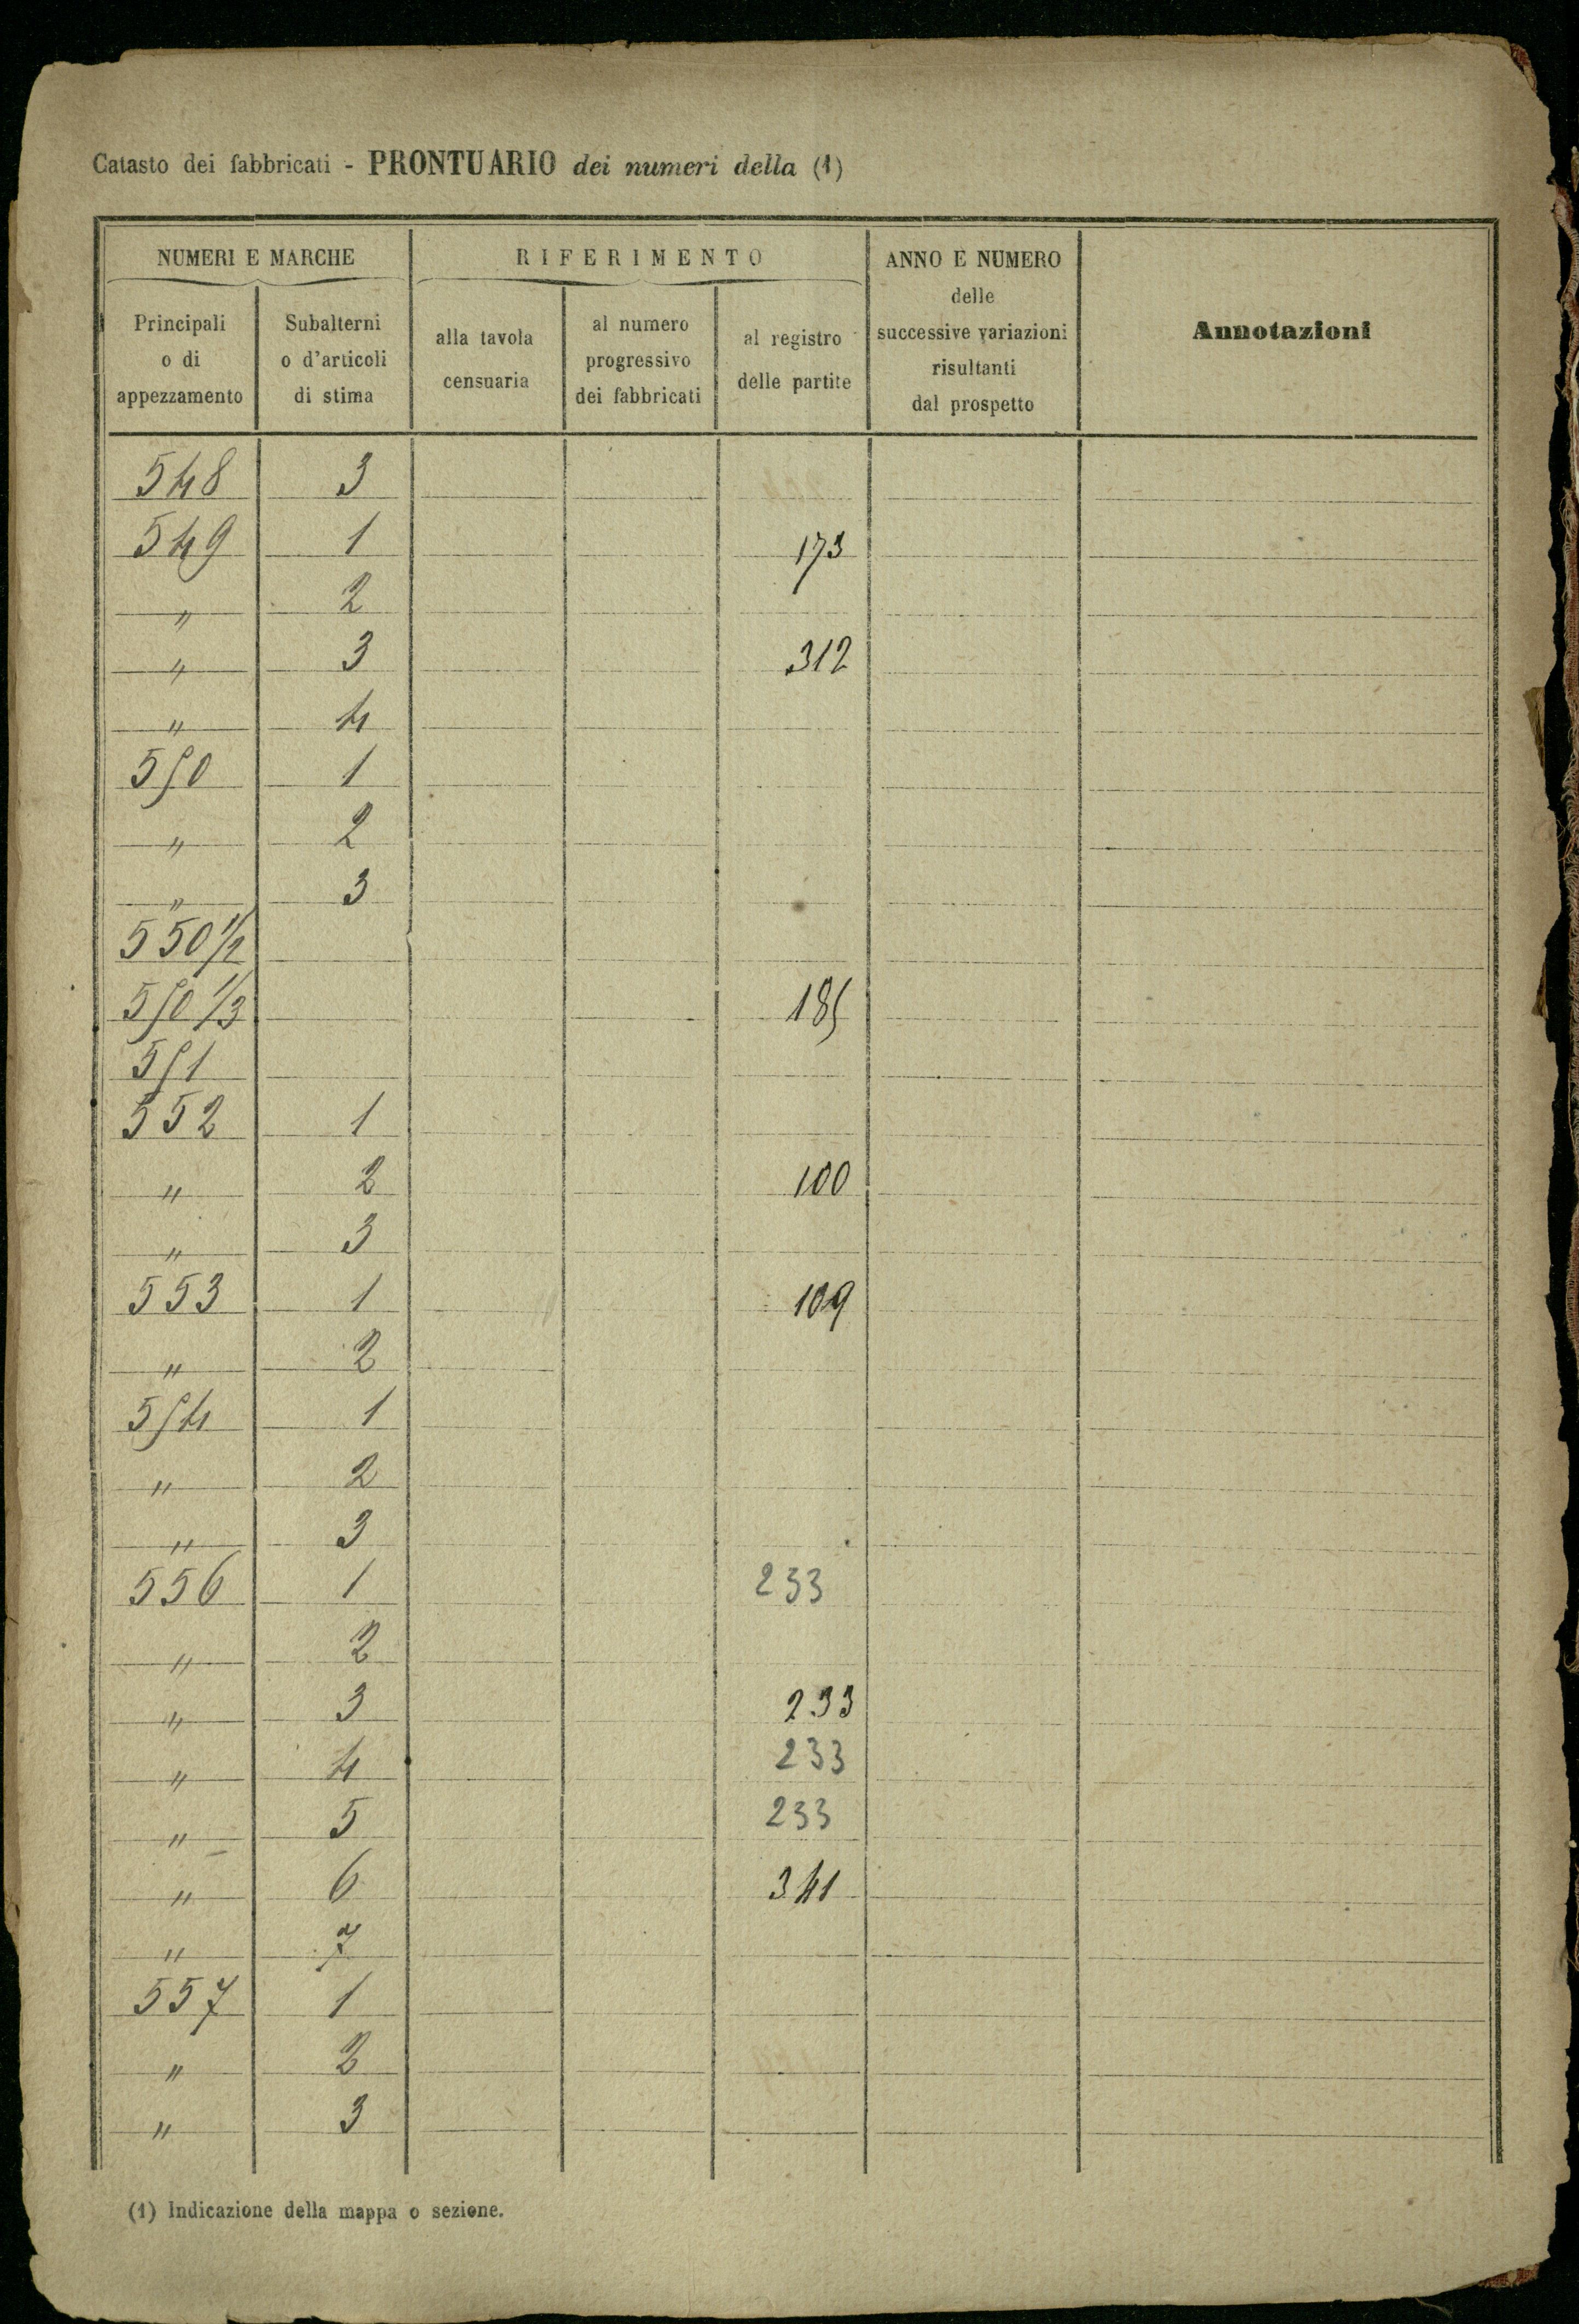 Catasto dei fabbricati - PRONTUARIO dei numeri della (1)
NUMERI E MARCHE
Principali
o di
appezzamento
Subalterni
o d'articoli
di stima
RIFERIMENTO
alla tavola
censuaria
al numero
progressivo
dei fabbricati
al registro
delle partite
ANNO E NUMERO
delle
successive variazioni
risultanti
dal prospetto
Annotazioni
548 3
549 1 173
" 2
" 3 312
" 4
550 1
" 2
" 3
550 1/2
550 1/3 185
551
552 1
" 2 100
" 3
553 1 109
" 2
554 1
" 2
" 3
556 1 233
" 2
" 3 233
" 4 233
" 5 233
" 6 341
" 7
557 1
" 2
" 3
(1) Indicazione della mappa o sezione.